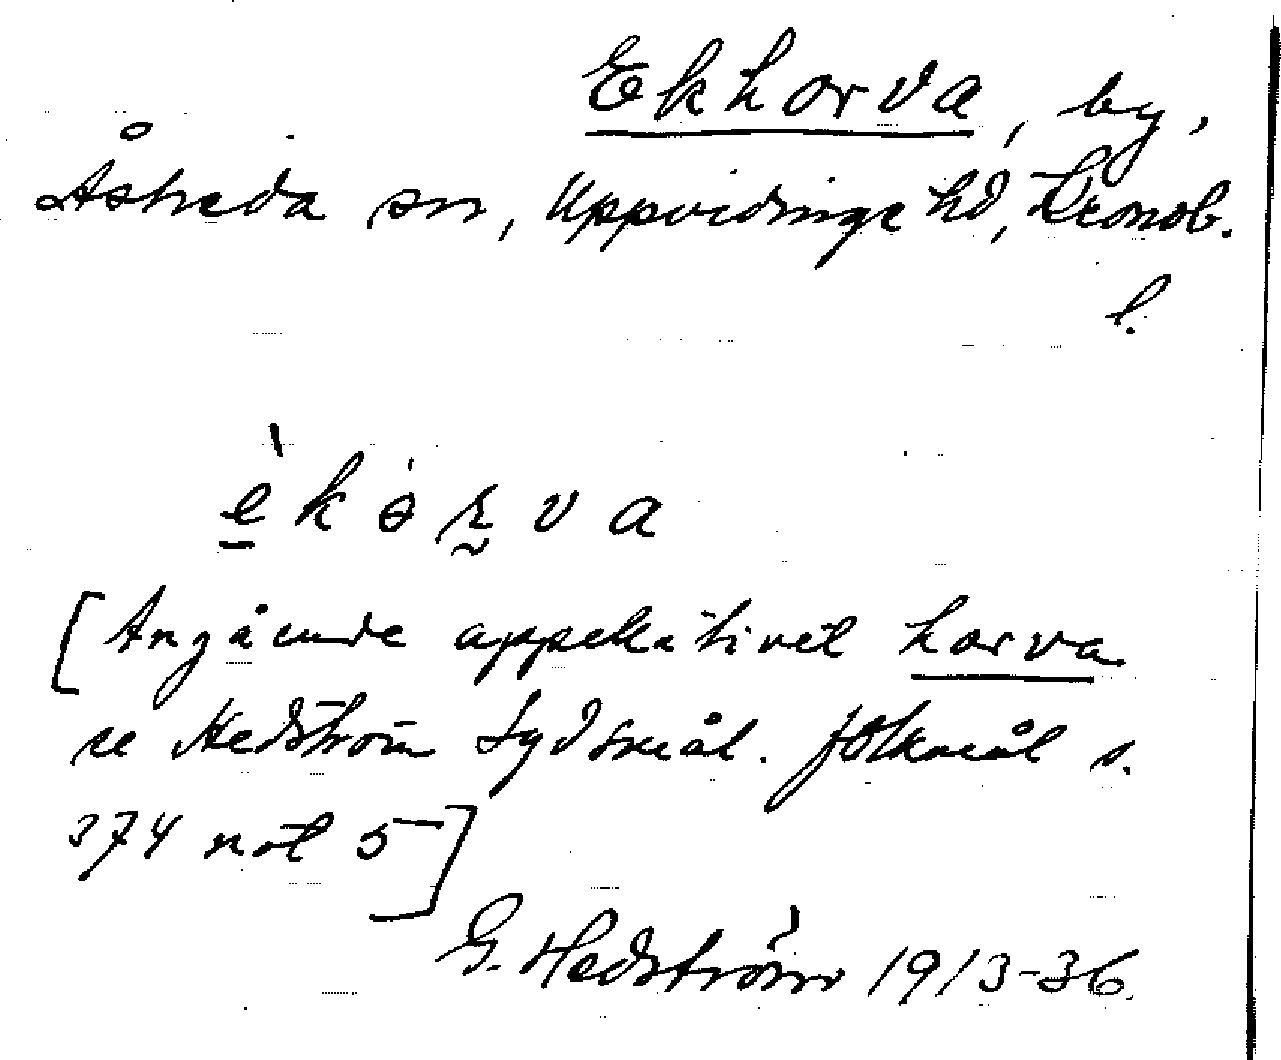 Ekhorva, by,
Åsheda sn, Uppvidinge hd, Kronob.
l.
è k ə ʀ v a
[Angående appellativet horva
se Hedström Sydsmål. folkmål s.
374 not 5]
G. Hedström 1913-36.